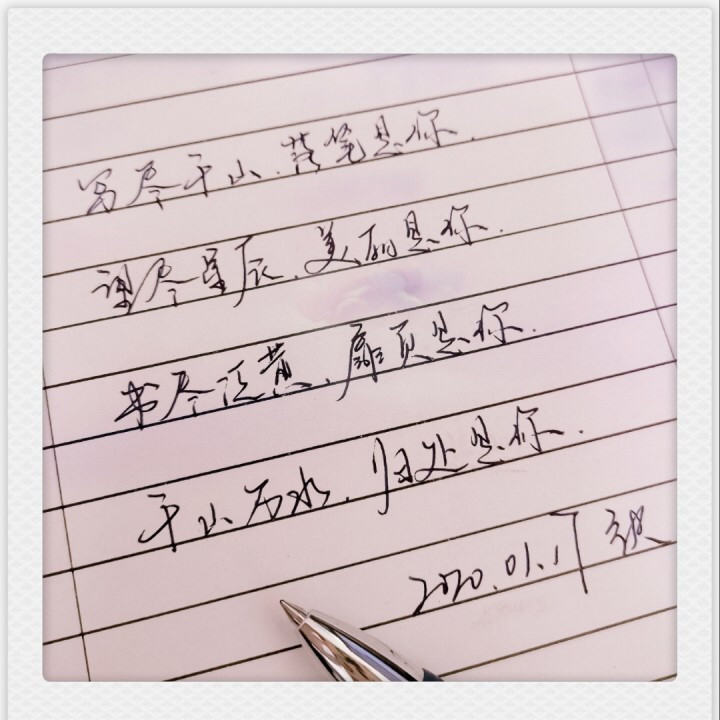 写尽千山，落笔是你。
望尽星辰，美丽是你。
书尽泛黄，扉页是你。
千山万水，归处是你。
2020.01.17